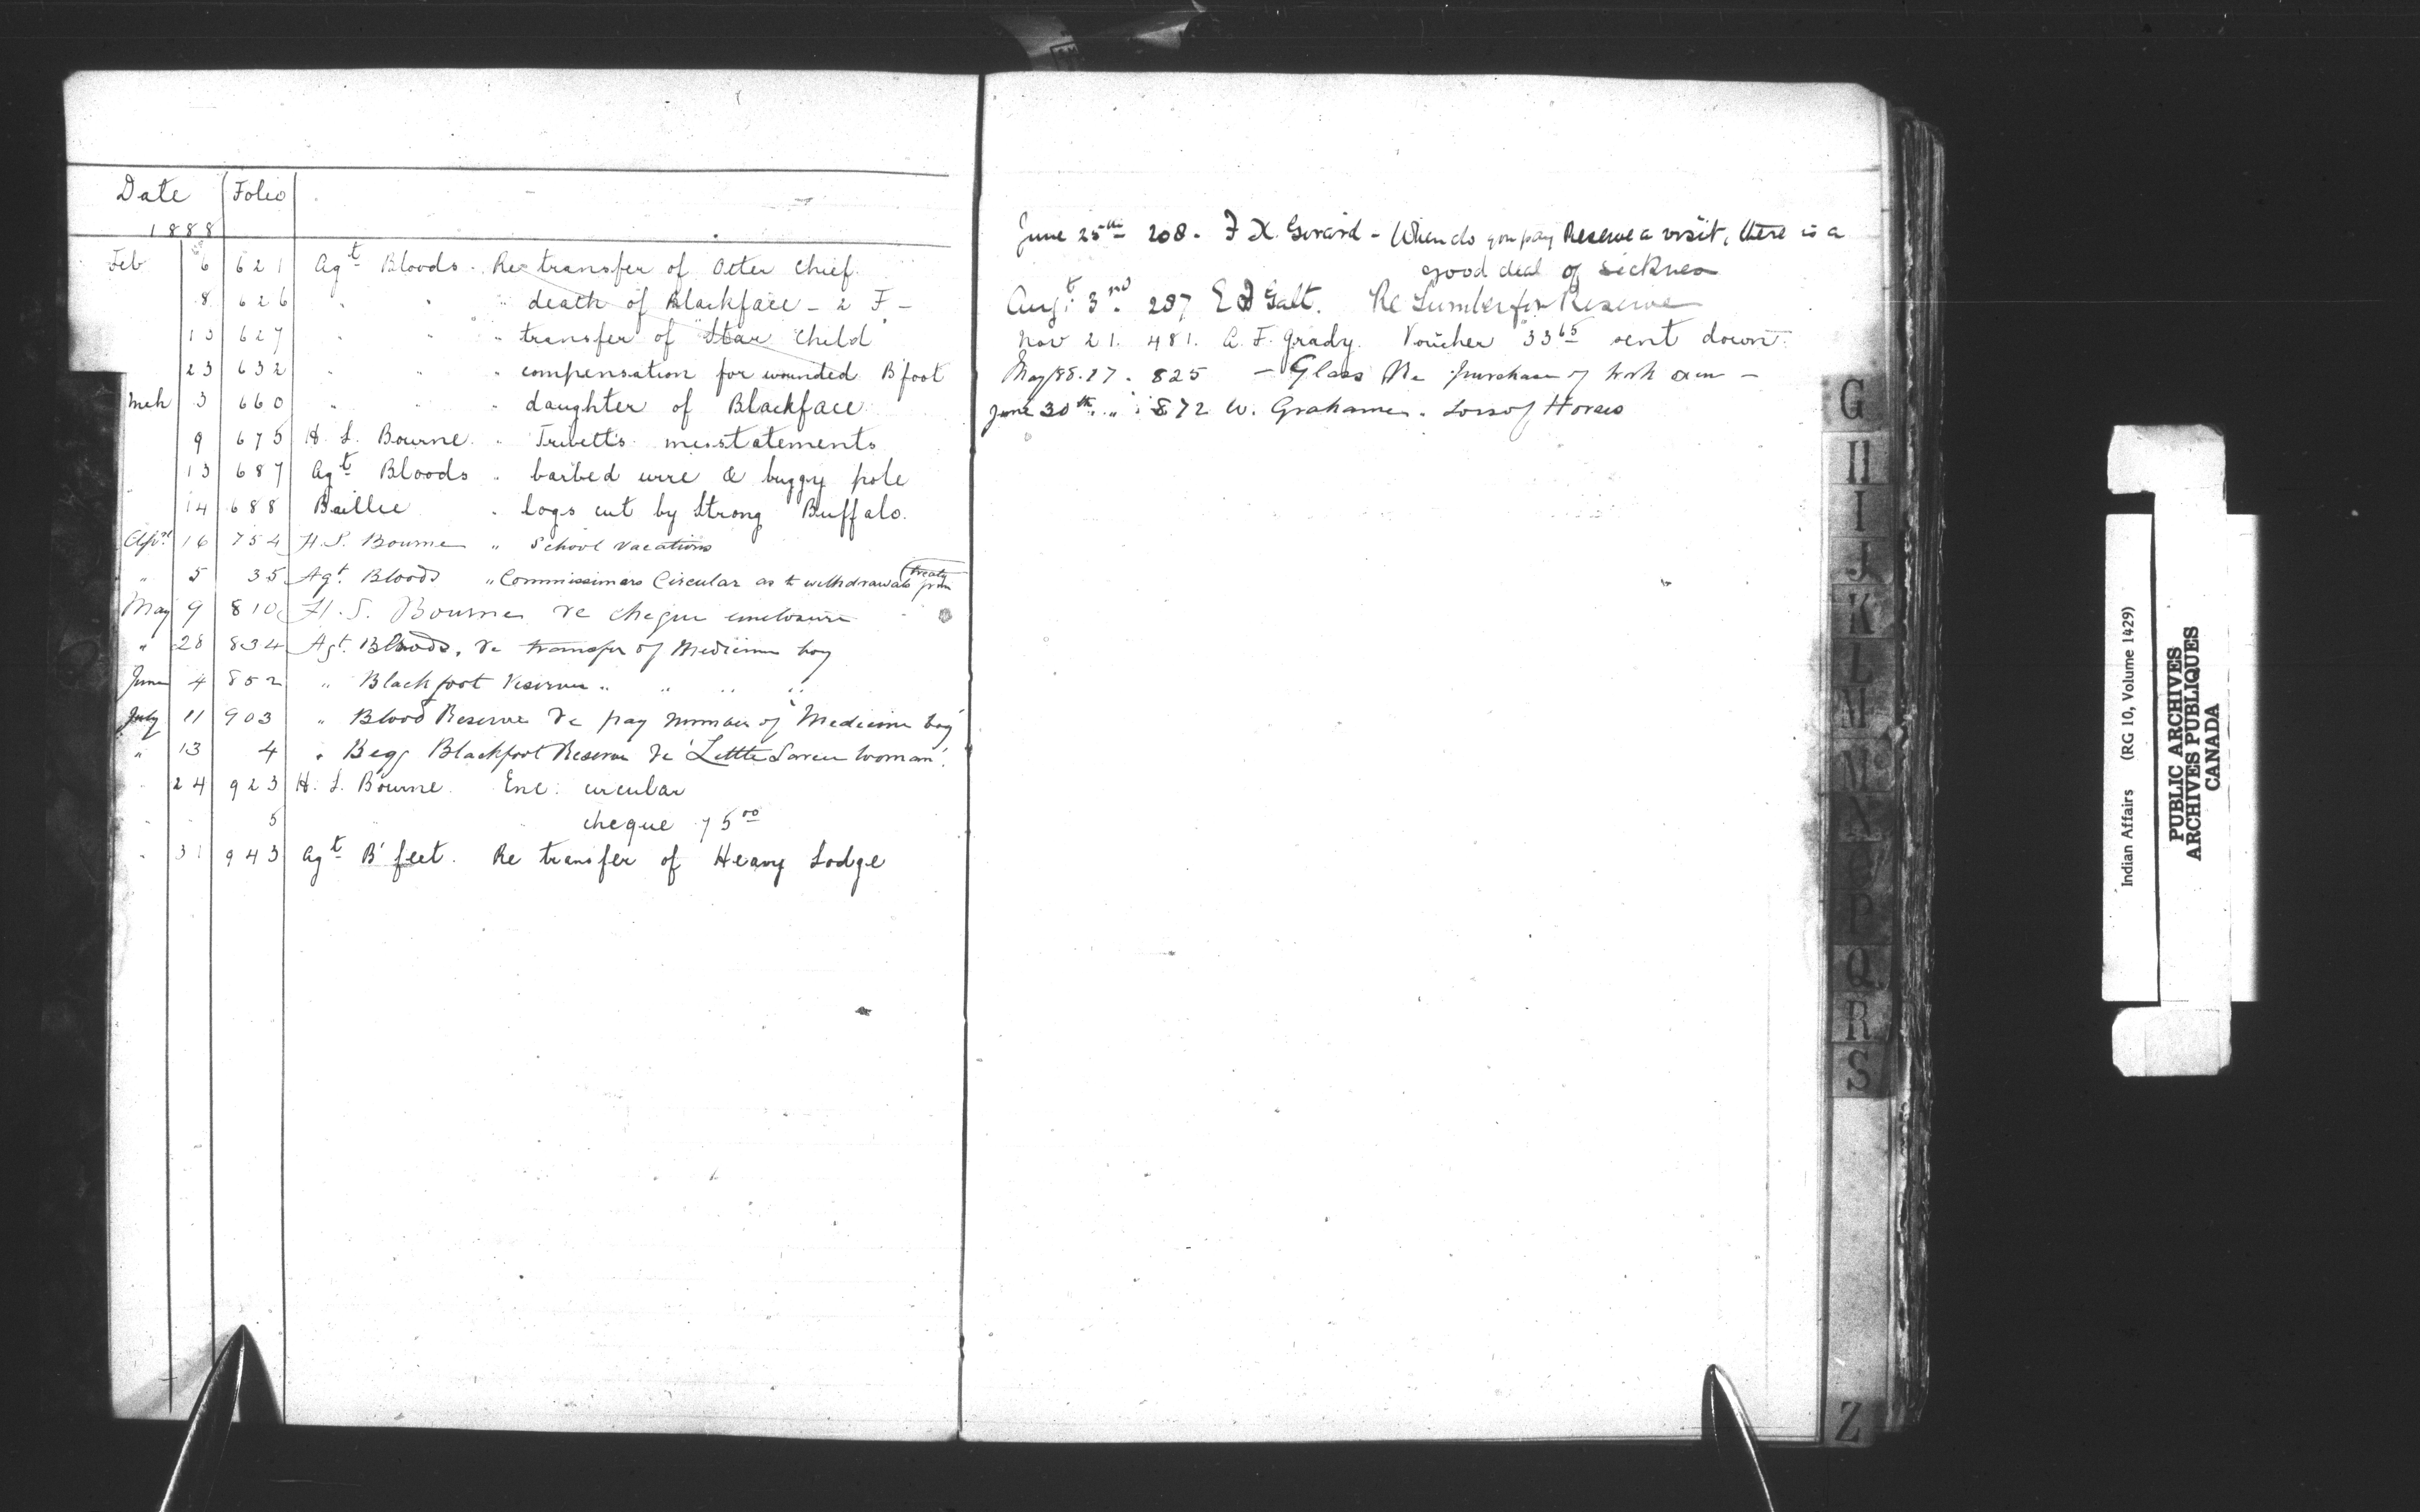 Date Folio
1888
Feb 6 621 Agt Bloods. Re transfer of Otter Chief.
8 626 " " " death of Blackface - 2 F. -
13 627 " " " transfer of "Star Child"
23 632 " " " compensation for wounded B'foot
Mch 3 660 " " " daughter of Blackface
9 675 H. S. Bourne " Trivett's misstatements
13 687 Agt Bloods " barbed wire & buggy pole
14 688 Baillie " logs cut by Strong Buffalo.
Apl 16 754 H. S. Bourne " School vacations
" 5 35 Agt. Bloods " Commissioners Circular as to withdrawals from treaty
May 9 810 H. S. Bourne re cheque enclosure
" 28 834 Agt. Bloods. re transfer of Medicine boy
June 4 852 " Blackfoot Reserve " " " "
July 11 903 " Blood Reserve re pay number of "Medicine boy"
" 13 4 " Begg Blackfoot Reserve re 'Little Sarcee Woman'.
" 24 923 H. S. Bourne. Enc: circular
" " 5 " " cheque 75 00
" 31 943 Agt B'feet. Re transfer of Heavy Lodge
June 25th 208. F. X. Girard - When do you pay Reserve a visit, there is a
good deal of sickness
Augt 3rd 287 E T Galt. Re Lumber for Reserve
Nov 21. 481. A. F. Grady. Voucher 33 65 sent down.
May/88. 27. 825 - Glass Re purchase of work oxen -
June 30th " 872 W. Grahame. Loss of Horses
G
H
I
J
K
L
M
Mc
N
O
P
Q
R
S
Z
Indian Affairs (RG 10, Volume 1429)
PUBLIC ARCHIVES
ARCHIVES PUBLIQUES
CANADA